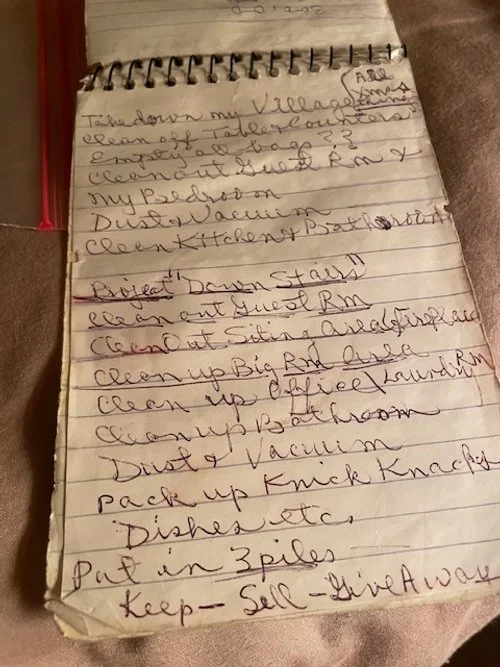 Take down my Village (All Xmas things
Clean off Table & Counters
Empty all bags??
Clean out Guest Rm &
my Bedroom
Dust & Vacuum
Clean Kitchen & Bathroom
Project "Down Stairs"
Clean out Guest Rm
Clean Out Siting area (fireplace
Clean up Big Rm Area
Clean up Office \ Laundry Rm
Clean up Bathroom
Dust & Vacuum
Pack up Knick Knacks
Dishes etc.
Put in 3 piles
Keep - Sell - Give Away